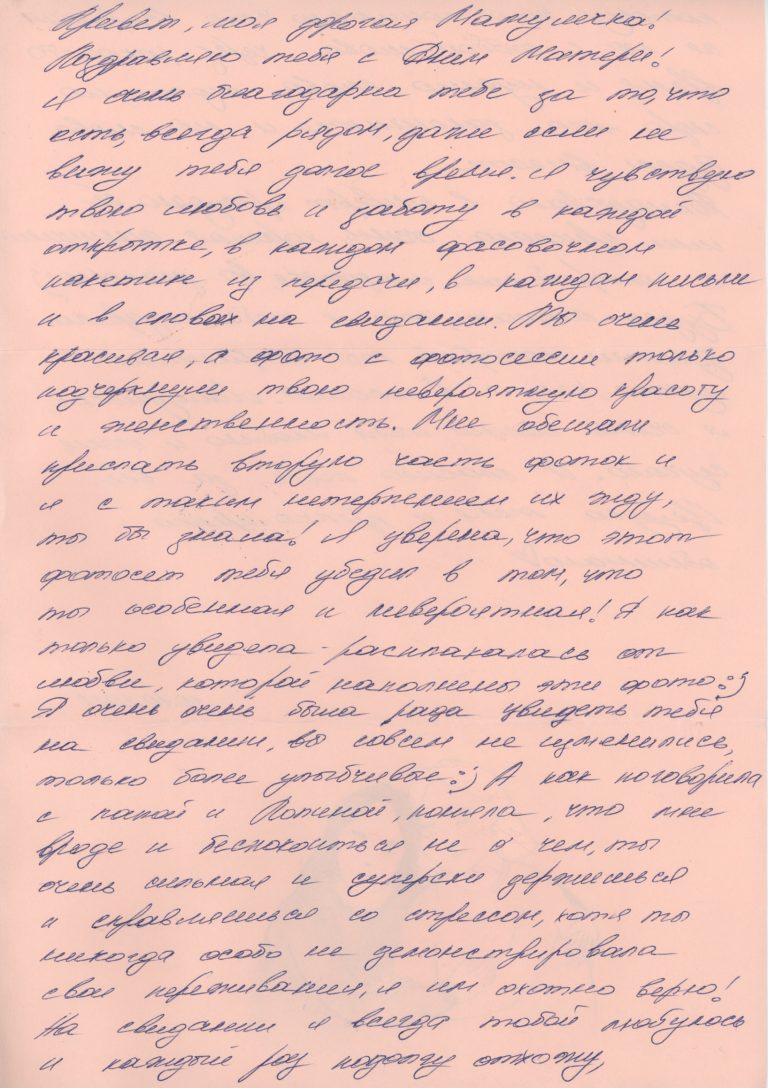 Привет, моя дорогая Матулечка!
Поздравляю тебя с Днём Матери!
Я очень благодарна тебе за то, что
есть, всегда рядом, даже если не
вижу тебя долгое время. Я чувствую
твою любовь и заботу в каждой
открытке, в каждом фасовочном
пакетике из передачи, в каждом письме
и в словах на свидании. Ты очень
красивая, а фото с фотосессии только
подчеркнули твою невероятную красоту
и женственность. Мне обещали
прислать вторую часть фоток и
я с таким нетерпением их жду,
ты бы знала! Я уверена, что этот
фотосет тебя убедил в том, что
ты особенная и невероятная! Я как
только увидела - расплакалась от
любви, которой наполнены эти фото :)
Я очень очень была рада увидеть тебя
на свидании, вы совсем не изменились,
только более улыбчивые :) А как поговорила
с папой и Полиной, поняла, что мне
вроде и беспокоиться не о чем, ты
очень сильная и суперски держишься
и справляешься со стрессом, хотя ты
никогда особо не демонстрировала
свои переживания, я им охотно верю!
На свидании я всегда тобой любуюсь
и каждый раз подолгу отхожу,